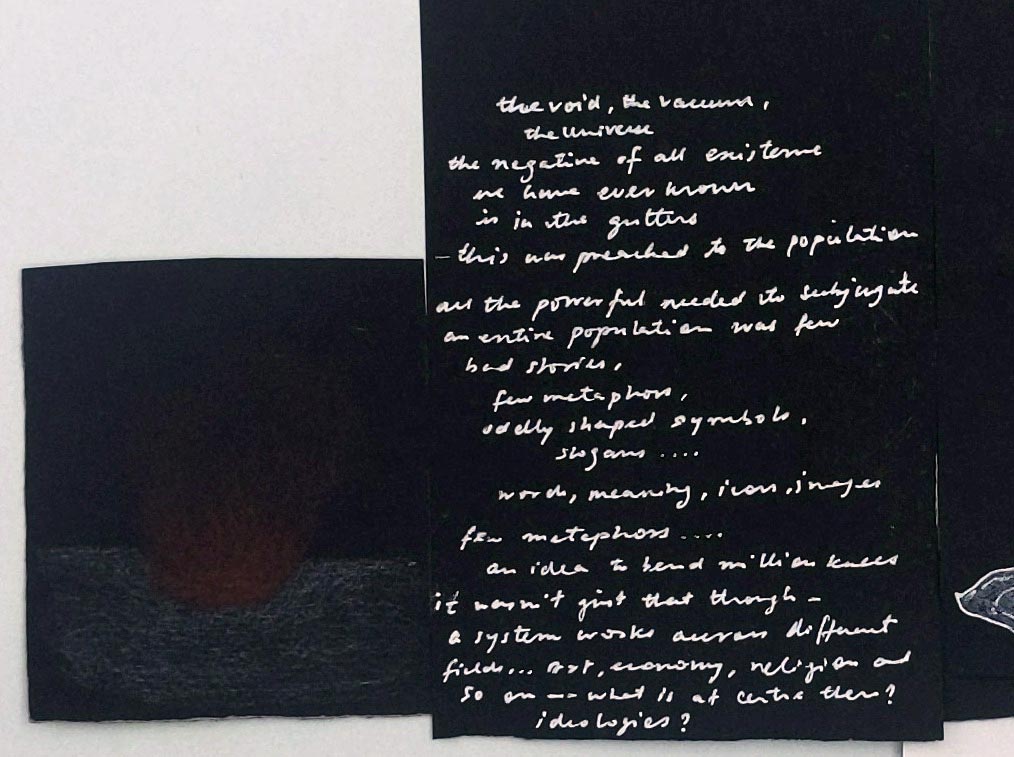 the void, the vacuum,
the universe
the negative of all existence
we have ever known
is in the gutters
– this was preached to the population
all the powerful needed to subjugate
an entire population was few
bad stories,
few metaphors,
oddly shaped symbols,
slogans ....
words, meaning, icons, images
few metaphors ....
an idea to bend million knees
it wasn't just that though –
a system works across different
fields... art, economy, religion and
so on –– what is at centre then?
ideologies?